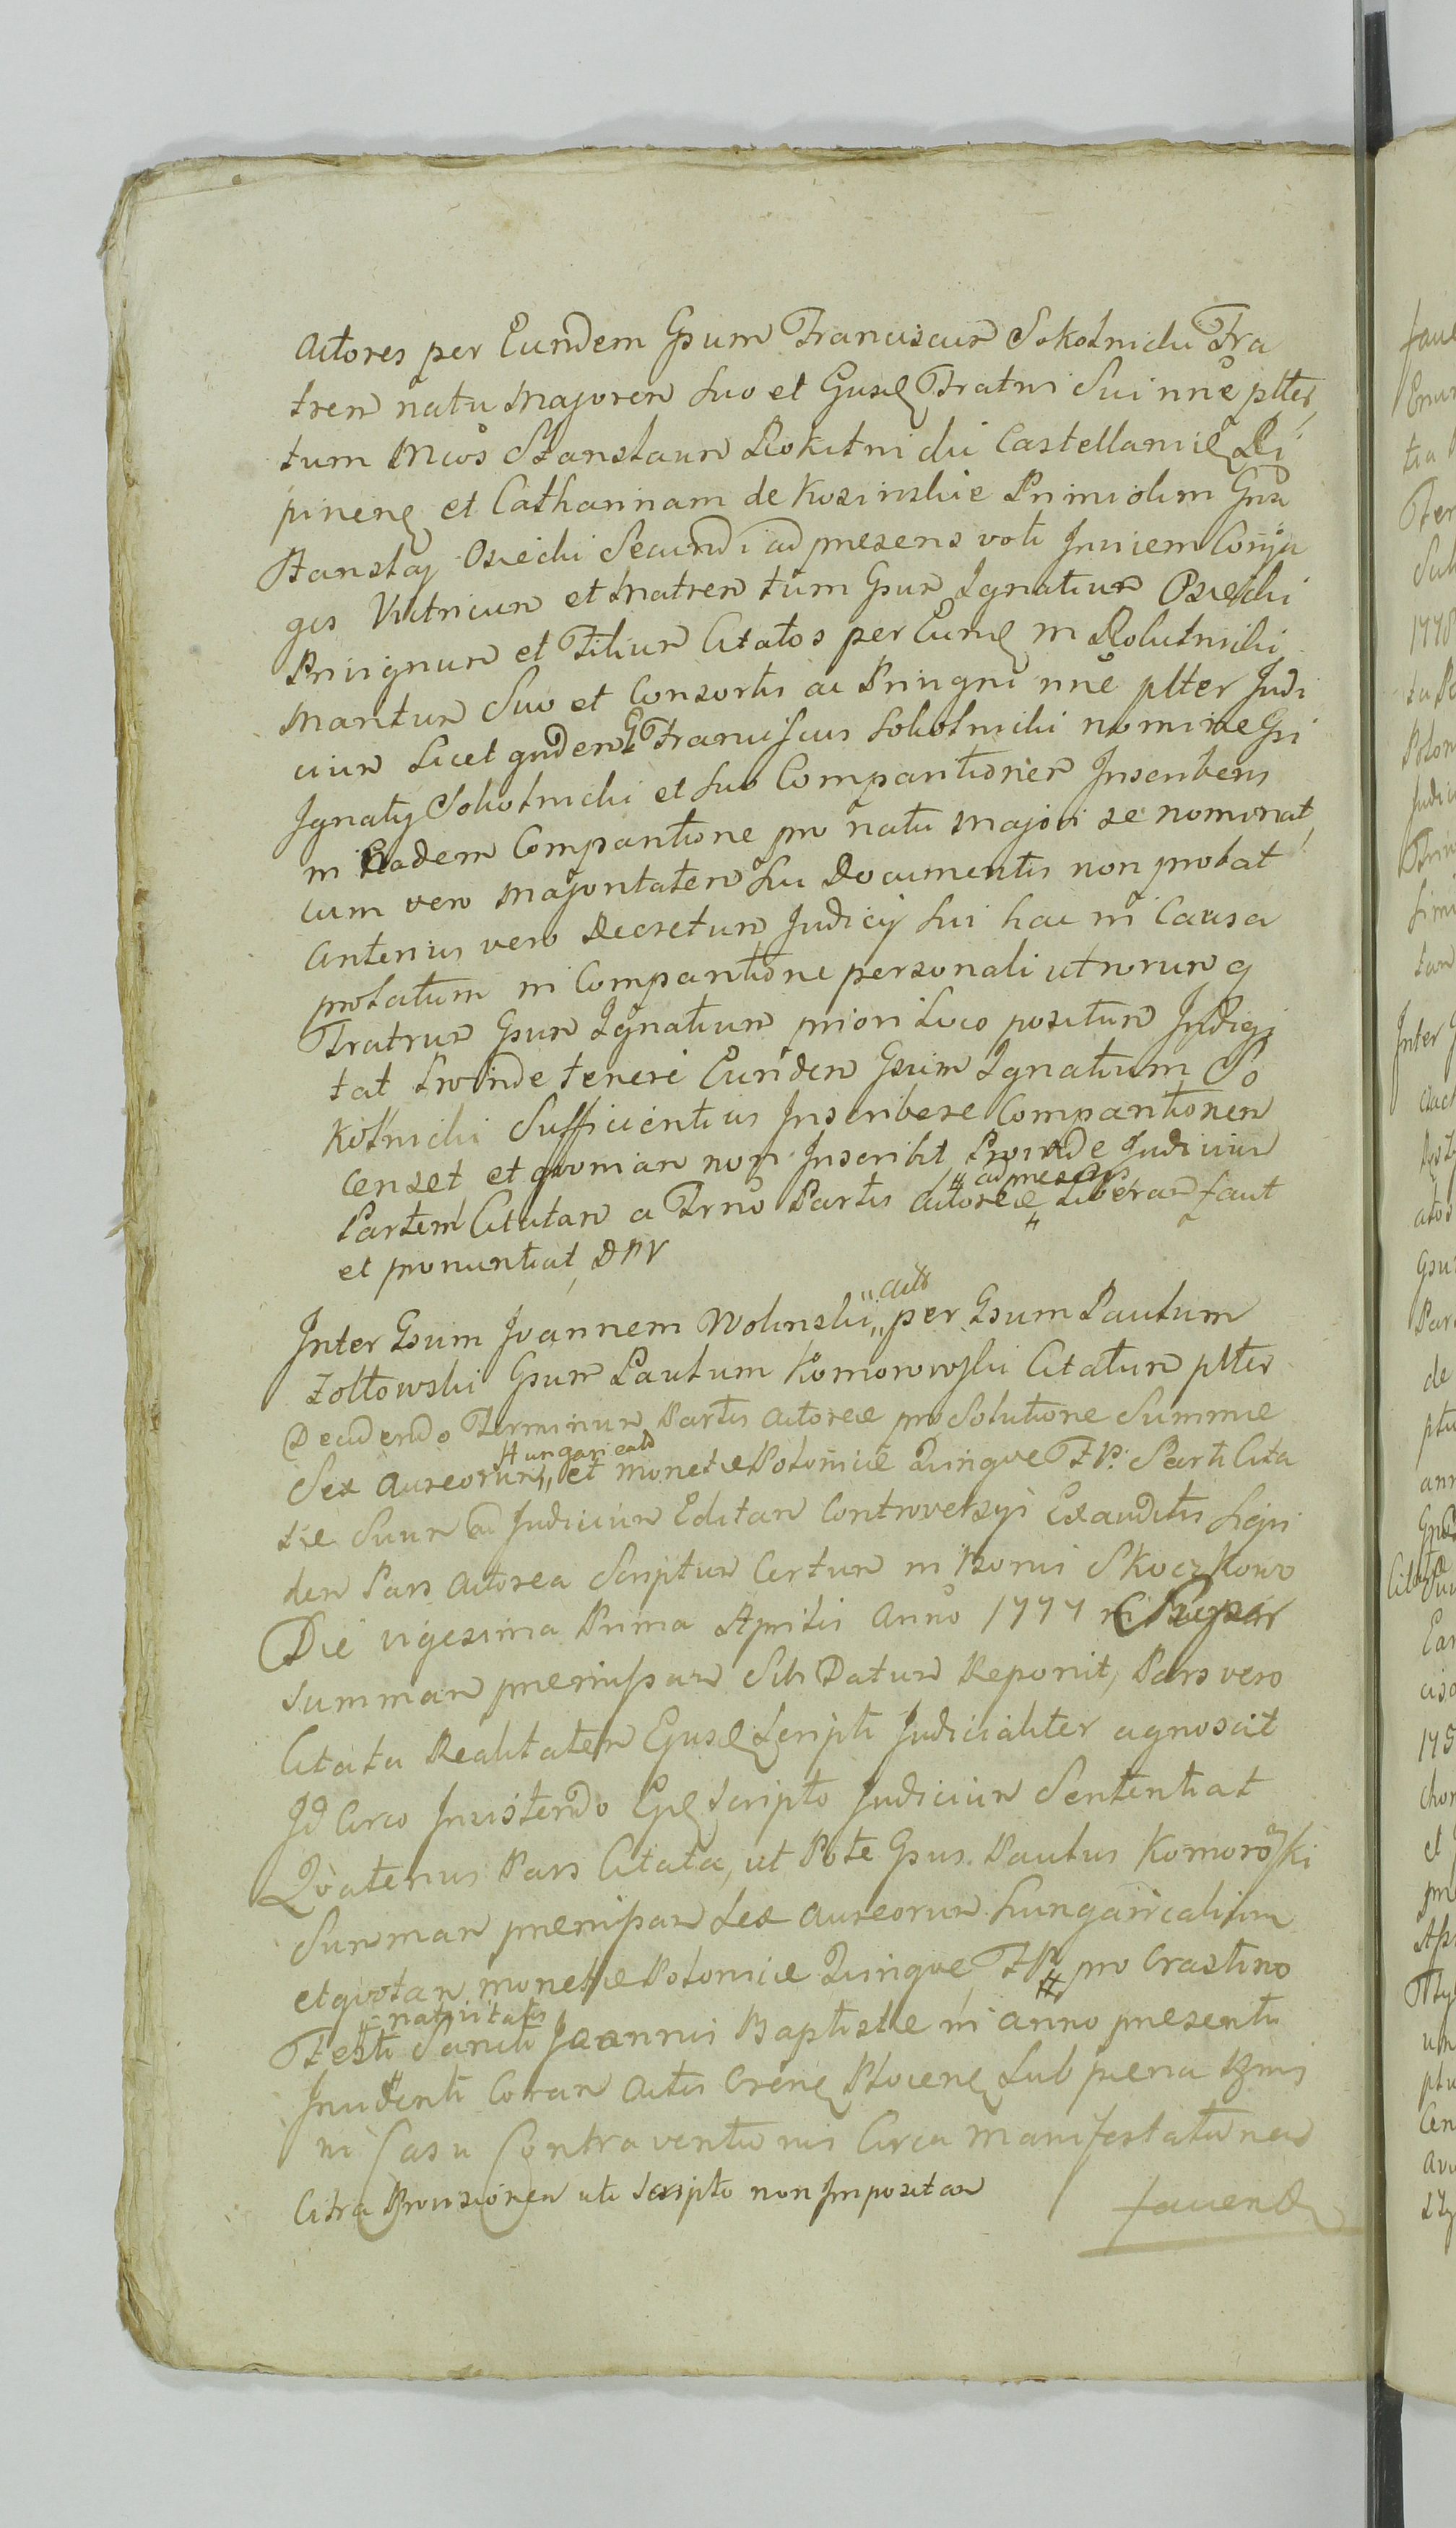 Actores per Eundem Gsum Franciscum Sokolnicki Fra
trem natu Majorem suo et Gusdem Fratris sui nne plter
tum Mcos Stanslaum Rokitnicki Castellaniæ Ri
pinens et Catharinam de Kosinskie Primi olim Gnsi
Stanslaj Osiecki Secundi ad presens voti Invicem Conju
ges Vitricum et Matrem tum Gsum Ignatium Osiecki
Privignum et Filium Citatos per Eund M Rokitnicki
Maritum Suo et Consortis ac Privigni nne plter Judi
cium Licet gnden G Franciscus Sokolnicki nomine Gsi
Ignatij Sokolnicki et suo Comparitionem Inscribens
in Eadem Comparitione pro natu Majori se nominat,
cum vero Majoritatem sui Documentis non probat
Anterius vero Decretum Judicij sui hac in Causa
prolatum in Comparitione personali utrorum q
Fratrum Gsum Ignatium priori Loco positum Indigi
tat Proinde teneri Eundem Gsum Ignatium So
kolnicki Sufficientius Inscribere Comparitionem
Censet, et quoniam non Inscribit Proinde Judicium
ad presens
Partem Citatam a Trno Partis Actoreæ Liberam facit
et pronuntiat, DPV
act
Inter Gsum Joannem Wolinski per Gsum Paulum
Zołtowski Gsum Paulum Komorowski Citatum plter
Decidendo Terminum Partis Actoreæ pro Solutione Summæ
Hungaricalium
Sex Aureorum et monetæ Polonicæ Quinque FP. Parti Cita
tæ Suum ad Judicium Editam Controversyi Exauditis siqui
dem Pars Actorea Scriptum Certum in Bonis Skoczkowo
Die vigesima Prima Aprilis Anno 1777 in
Summam premissam Sibi Datum Reponit, Pars vero
Citata Realitatem Ejusd Scripti Judicialiter agnoscit
Id Circo Insistendo Eid Scripto Judicium Sententiat
Quatenus Pars Citata, ut Pote Gsus Paulus Komorowski
Summam premissam Sex Aureorum hungaricalium
et quotam monetæ Polonicæ Quinque FP. pro Crastino
nativitatis
Festi Sancti Joannis Baptistæ in anno presenti
Incidenti Coram Actis Crens Plocens Sub pœna Bnnis
in Casu Contraventionis Circa Manifestationem
Citra Provisionem uti Scripto non Impositam
faciend